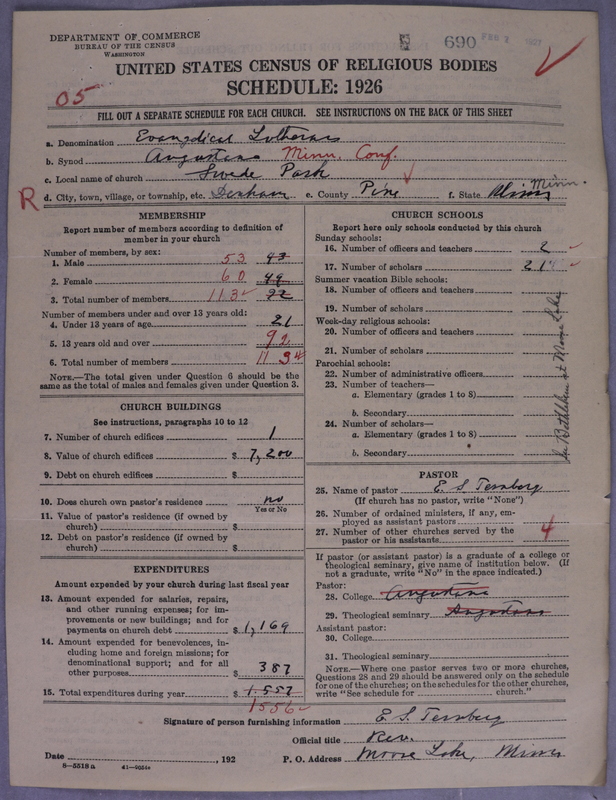 DEPARTMENT OF COMMERCE
BUREAU OF THE CENSUS
WASHINGTON
690 FEB 2 1927
UNITED STATES CENSUS OF RELIGIOUS BODIES
SCHEDULE: 1926
05
FILL OUT A SEPARATE SCHEDULE FOR EACH CHURCH. SEE INSTRUCTIONS ON THE BACK OF THIS SHEET
a. Denomination Evangelical Lutheran
b. Synod Augustana Minn. Conf.
c. Local name of church Swede Park
R d. City, town, village, or township, etc. Denham e. County Pine f. State Minn. Minn.
MEMBERSHIP
Report number of members according to definition of member in your church
Number of members, by sex:
1. Male 53 43
2. Female 60 49
3. Total number of members 113 92
Number of members under and over 13 years old:
4. Under 13 years of age 21
5. 13 years old and over 92
6. Total number of members 113
NOTE.—The total given under Question 6 should be the same as the total of males and females given under Question 3.
CHURCH BUILDINGS
See instructions, paragraphs 10 to 12
7. Number of church edifices 1
8. Value of church edifices $ 7,200
9. Debt on church edifices $
10. Does church own pastor's residence no
Yes or No
11. Value of pastor's residence (if owned by church) $
12. Debt on pastor's residence (if owned by church) $
EXPENDITURES
Amount expended by your church during last fiscal year
13. Amount expended for salaries, repairs, and other running expenses; for improvements or new buildings; and for payments on church debt $ 1,169
14. Amount expended for benevolences, including home and foreign missions; for denominational support; and for all other purposes 387
15. Total expenditures during year $ 1557
1556
CHURCH SCHOOLS
Report here only schools conducted by this church
Sunday schools:
16. Number of officers and teachers 2
17. Number of scholars 21
Summer vacation Bible schools:
18. Number of officers and teachers
19. Number of scholars
Week-day religious schools:
20. Number of officers and teachers
21. Number of scholars
Parochial schools:
22. Number of administrative officers
23. Number of teachers—
a. Elementary (grades 1 to 8)
b. Secondary
24. Number of scholars—
a. Elementary (grades 1 to 8)
b. Secondary
See Bethlehem at Moose Lake
PASTOR
25. Name of pastor E. S. Ternberg
(If church has no pastor, write "None")
26. Number of ordained ministers, if any, employed as assistant pastors
27. Number of other churches served by the pastor or his assistants 4
If pastor (or assistant pastor) is a graduate of a college or theological seminary, give name of institution below. (If not a graduate, write "No" in the space indicated.)
Pastor:
28. College Augustana
29. Theological seminary Augustana
Assistant pastor:
30. College
31. Theological seminary
NOTE.—Where one pastor serves two or more churches, Questions 28 and 29 should be answered only on the schedule for one of the churches; on the schedules for the other churches, write "See schedule for church."
Signature of person furnishing information E. S. Ternberg
Official title Rev.
Date , 192 P. O. Address Moose Lake, Minn
8—5518 a